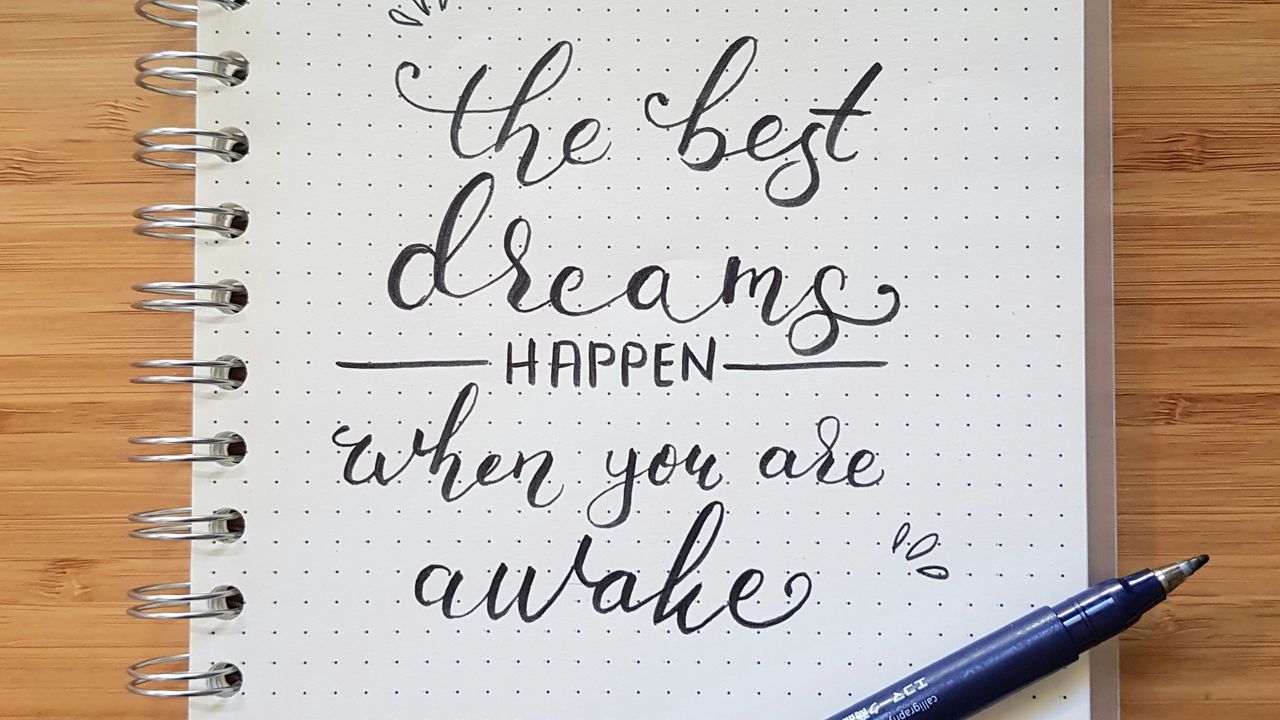 the best
dreams
HAPPEN
when you are
awake
calligraphy